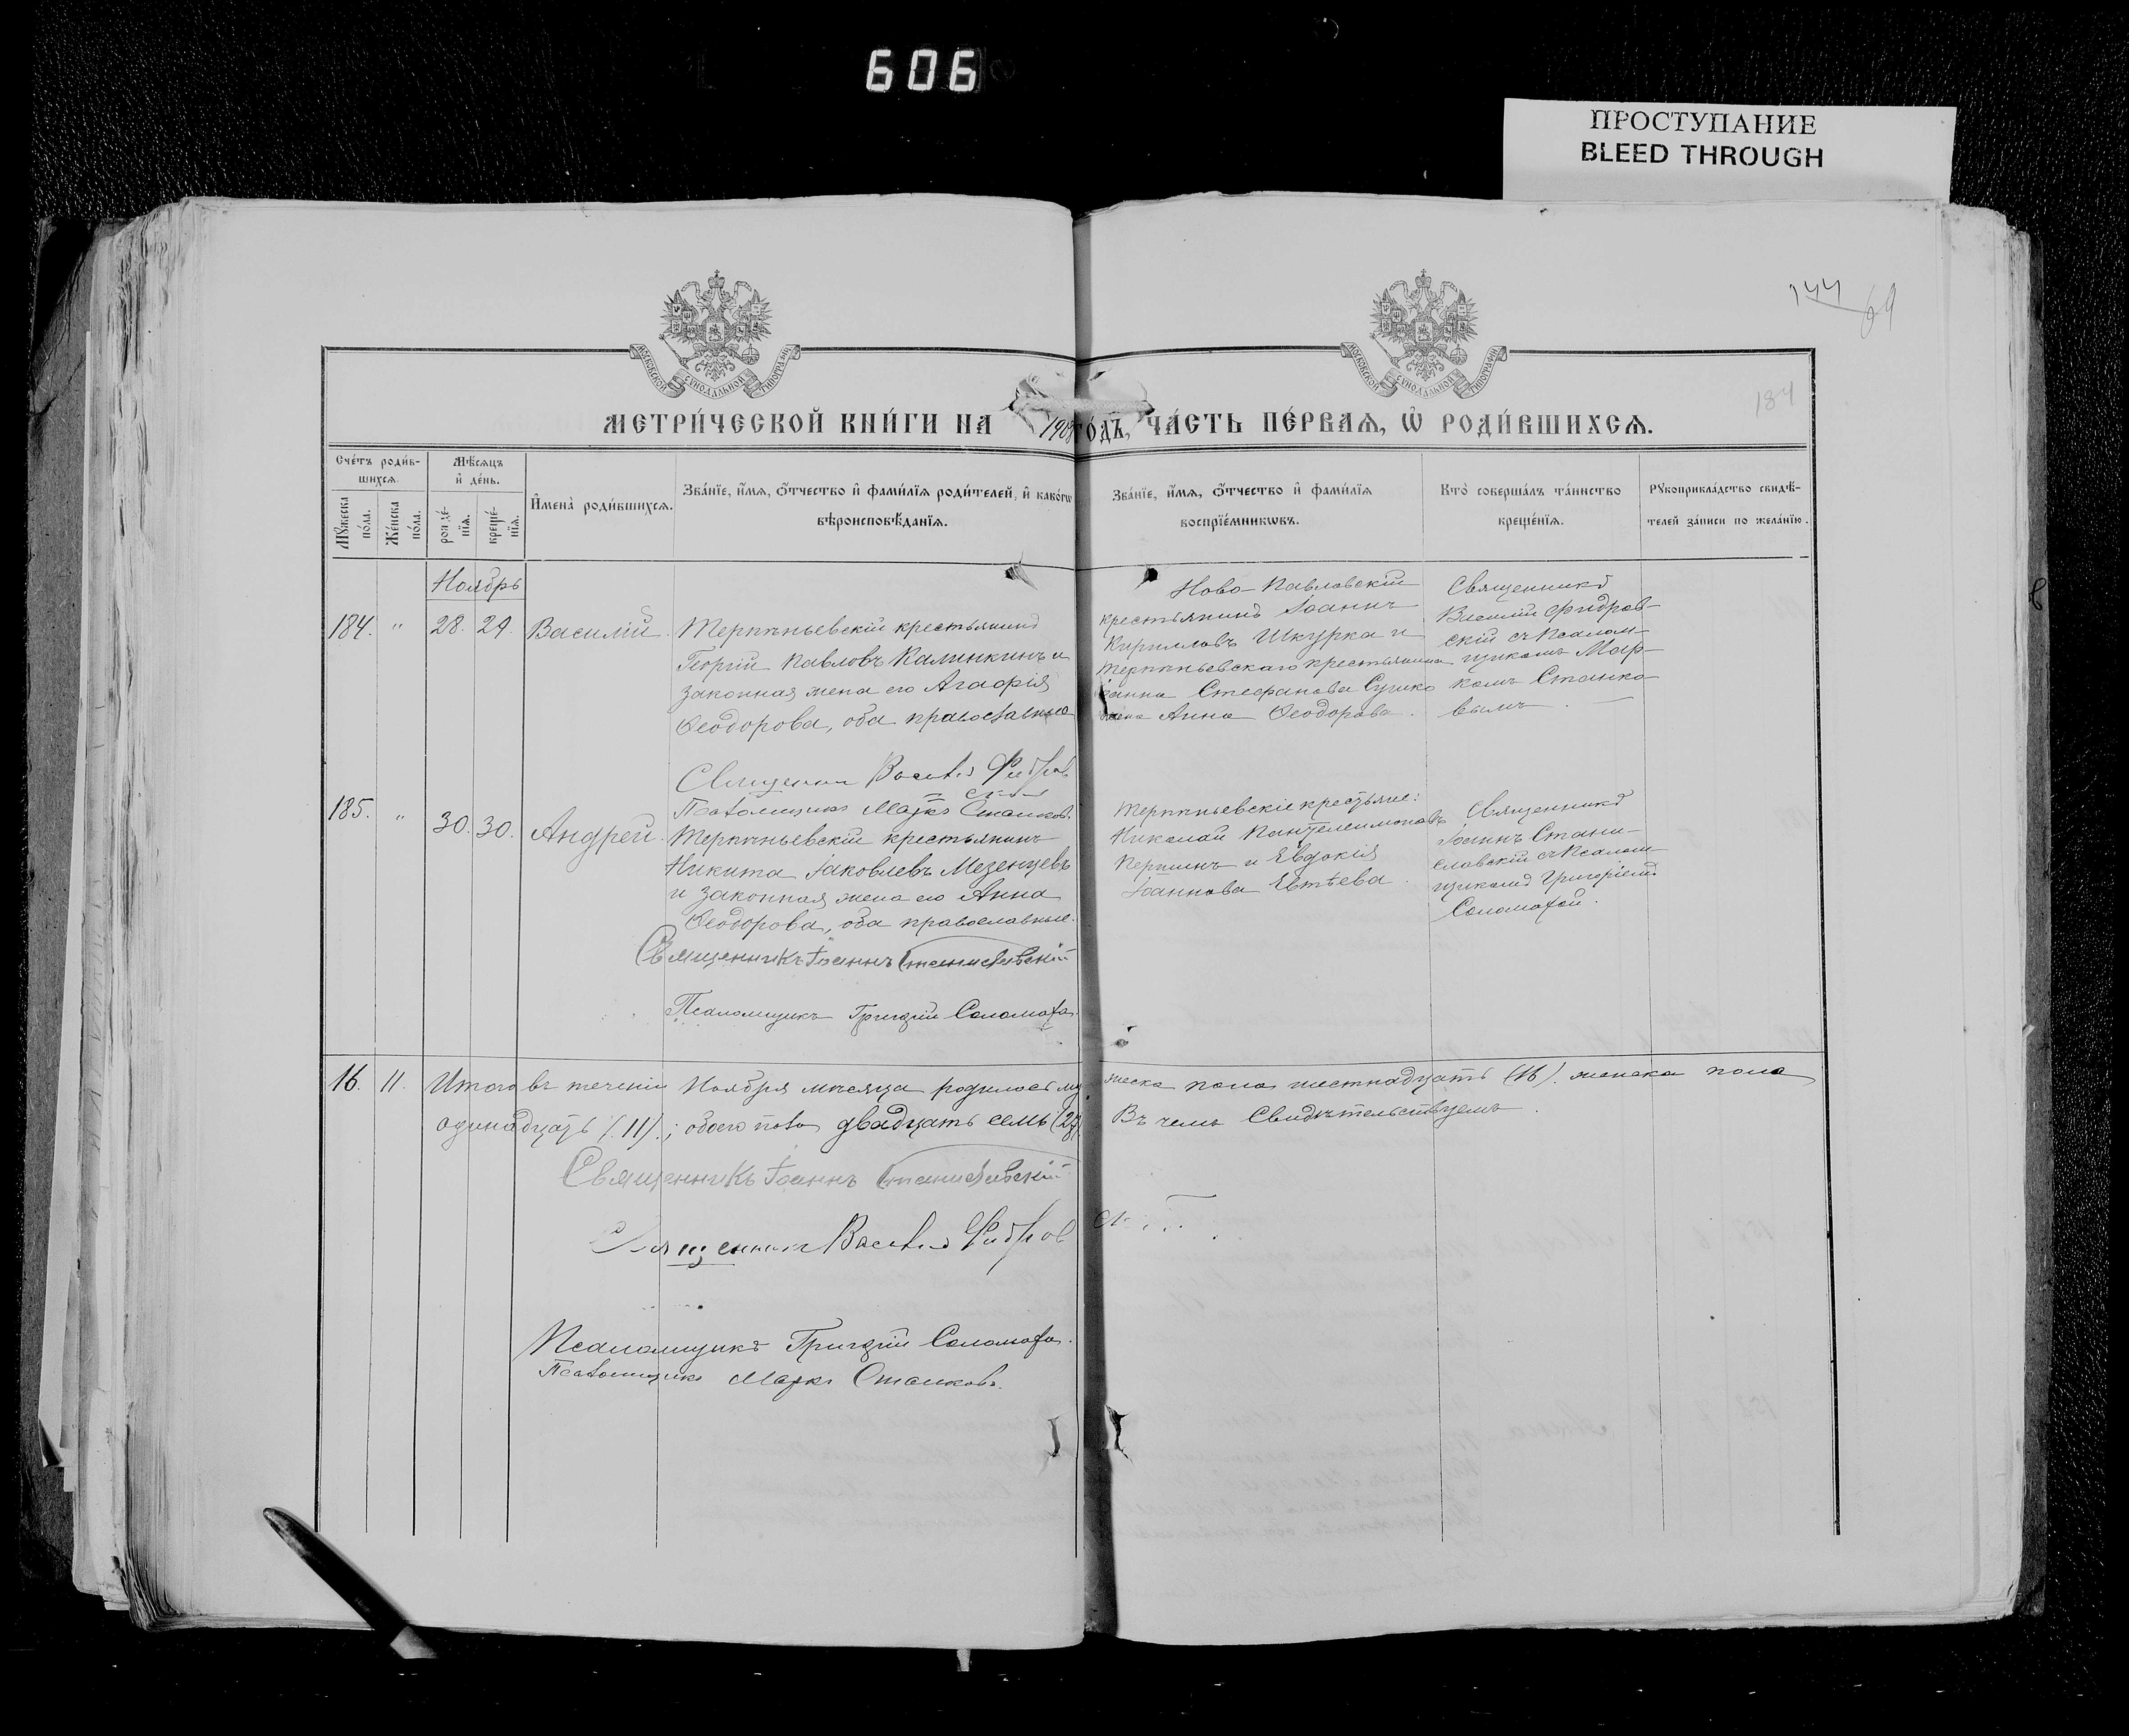 606
ПРОСТУПАНИЕ
BLEED THROUGH
144
69
184
МОСКОВСКОЙ СѴНОДАЛЬНОЙ ТИПОГРАФІИ
МОСКОВСКОЙ СѴНОДАЛЬНОЙ ТИПОГРАФІИ
МЕТРИ́ЧЕСКОЙ КНИ́ГИ НА 1908 ГО́ДЪ, ЧА́СТЬ ПЕ́РВАѦ, Ѡ҆ РОДИ́ВШИХСѦ.
Сче́тъ роди́в-
шихсѧ.
Мꙋ́жеска по́ла.
Же́нска по́ла.
Мѣ́сѧцъ
и҆ де́нь.
рожде́-
нїѧ.
креще́-
нїѧ.
И҆мена̀ роди́вшихсѧ.
Зва́нїе, и҆́мѧ, ѻ҆́тчество и҆ фами́лїѧ роди́телей, и҆ како́гѡ
вѣроисповѣ́данїѧ.
Зва́нїе, и҆́мѧ, ѻ҆́тчество и҆ фами́лїѧ
воспрїе́мникѡвъ.
Кто̀ соверша́лъ та́инство
креще́нїѧ.
Рꙋкоприкла́дство свидѣ́-
телей за́писи по жела́нїю.
Ноябрь
184. " 28. 29. Василій.
Терпѣньевскій крестьянинъ
Георгій Павловъ Калинкинъ и
законная жена его Агафія
Ѳеодорова, оба православные
Ново-Павловскій
крестьянинъ Іоаннъ
Кирилловъ Шкурка и
Терпѣньевскаго крестьянина
Іоанна Стефанова Сушко
жена Анна Ѳеодорова.
Священникъ
Василій Фидров-
скій съ Псалом-
щикомъ Мар-
комъ Станко-
вымъ.
Священникъ Василій Фидровскій
Псаломщикъ Маркъ Станковъ.
185. " 30. 30. Андрей.
Терпѣньевскій крестьянинъ
Никита Іаковлевъ Мезенцевъ
и законная жена его Анна
Ѳеодорова, оба православные.
Терпѣньевскіе крестьяне:
Николай Пантелеимоновъ
Першинъ и Евдокія
Іоаннова Евтѣева.
Священникъ
Іоаннъ Стани-
славскій съ Псалом-
щикомъ Григоріемъ
Соломахой.
Священникъ Іоаннъ Станиславскій
Псаломщикъ Григорій Соломаха.
16. 11. Итого въ теченіи Ноября мѣсяца родилось мужеска пола шестнадцать (16). женска пола
одинадцать (11).; обоего пола двадцать семь (27). Въ чемъ Свидѣтельствуемъ.
Священникъ Іоаннъ Станиславскій
Священникъ Василій Фидровскій
Псаломщикъ Григорій Соломаха.
Псаломщикъ Маркъ Станковъ.